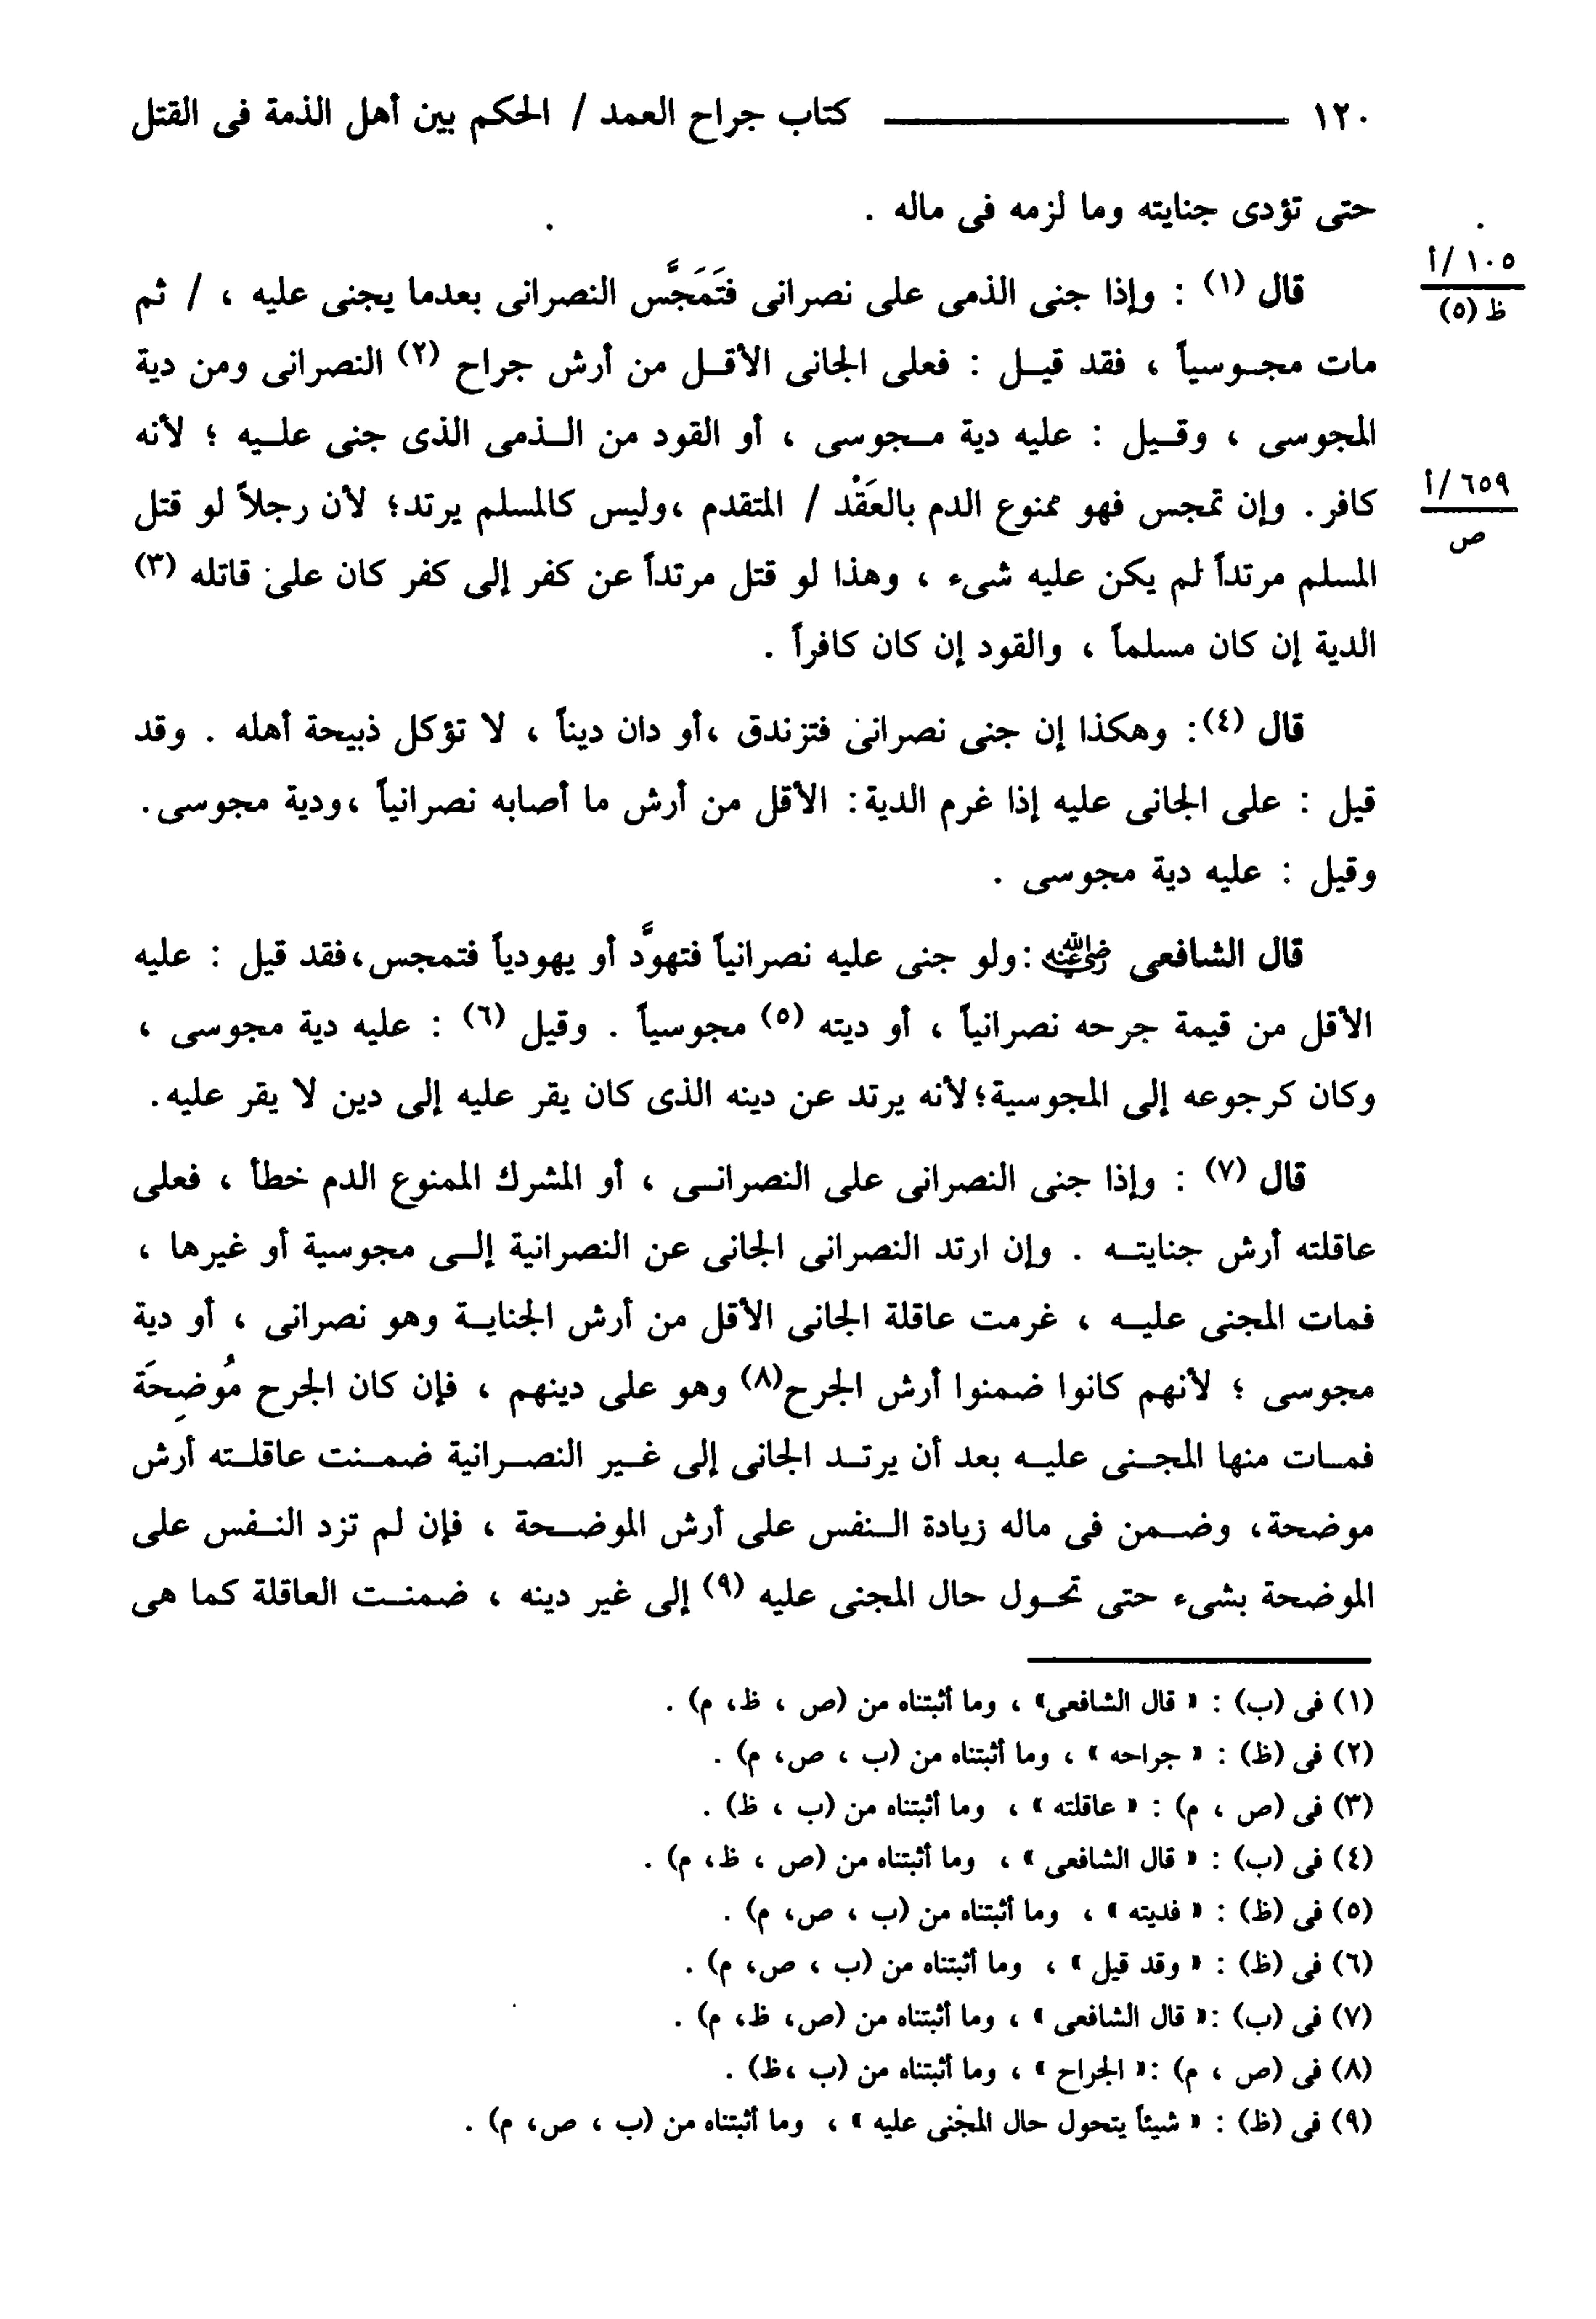 ١٢٠ ــــــــــــــــ كتاب جراح العمد / الحكم بين أهل الذمة فى القتل
حتى تؤدى جنايته وما لزمه فى ماله .
١٠٥/أ
ظ (٥)
قال (١) : وإذا جنى الذمى على نصرانى فتَمَجَّس النصرانى بعدما يجنى عليه ، / ثم
مات مجـوسياً ، فقد قيـل : فعلى الجانى الأقـل من أرش جراح (٢) النصرانى ومن دية
المجوسى ، وقـيل : عليه دية مـجوسى ، أو القود من الـذمى الذى جنى علـيه ؛ لأنه
٦٥٩/أ
ص
كافر . وإن تمجس فهو ممنوع الدم بالعَقْد / المتقدم ،وليس كالمسلم يرتد؛ لأن رجلاً لو قتل
المسلم مرتداً لم يكن عليه شىء ، وهذا لو قتل مرتداً عن كفر إلى كفر كان على قاتله (٣)
الدية إن كان مسلماً ، والقود إن كان كافراً .
قال (٤): وهكذا إن جنى نصرانى فتزندق ،أو دان ديناً ، لا تؤكل ذبيحة أهله . وقد
قيل : على الجانى عليه إذا غرم الدية: الأقل من أرش ما أصابه نصرانياً ،ودية مجوسى.
وقيل : عليه دية مجوسى .
قال الشافعى رضي الله عنه :ولو جنى عليه نصرانياً فتهوَّد أو يهودياً فتمجس،فقد قيل : عليه
الأقل من قيمة جرحه نصرانياً ، أو ديته (٥) مجوسياً . وقيل (٦) : عليه دية مجوسى ،
وكان كرجوعه إلى المجوسية؛لأنه يرتد عن دينه الذى كان يقر عليه إلى دين لا يقر عليه.
قال (٧) : وإذا جنى النصرانى على النصرانـى ، أو المشرك الممنوع الدم خطأ ، فعلى
عاقلته أرش جنايتـه . وإن ارتد النصرانى الجانى عن النصرانية إلـى مجوسية أو غيرها ،
فمات المجنى عليـه ، غرمت عاقلة الجانى الأقل من أرش الجنايـة وهو نصرانى ، أو دية
مجوسى ؛ لأنهم كانوا ضمنوا أرش الجرح(٨) وهو على دينهم ، فإن كان الجرح مُوضِحَة
فمـات منها المجـنى عليـه بعد أن يرتـد الجانى إلى غـير النصـرانية ضمـنت عاقلـته أرش
موضحة، وضـمن فى ماله زيادة الـنفس على أرش الموضـحة ، فإن لم تزد النـفس على
الموضحة بشىء حتى تحـول حال المجنى عليه (٩) إلى غير دينه ، ضمنـت العاقلة كما هى
(١) فى (ب) : « قال الشافعى» ، وما أثبتناه من (ص ، ظ، م) .
(٢) فى (ظ) : « جراحه » ، وما أثبتناه من (ب ، ص، م) .
(٣) فى (ص ، م) : « عاقلته » ، وما أثبتناه من (ب ، ظ) .
(٤) فى (ب) : « قال الشافعى » ، وما أثبتناه من (ص ، ظ، م) .
(٥) فى (ظ) : « فديته » ، وما أثبتناه من (ب ، ص، م) .
(٦) فى (ظ) : « وقد قيل » ، وما أثبتناه من (ب ، ص، م) .
(٧) فى (ب) :« قال الشافعى » ، وما أثبتناه من (ص، ظ، م) .
(٨) فى (ص ، م) :« الجراح » ، وما أثبتناه من (ب ،ظ) .
(٩) فى (ظ) : « شيئاً يتحول حال المجنى عليه » ، وما أثبتناه من (ب ، ص، م) .